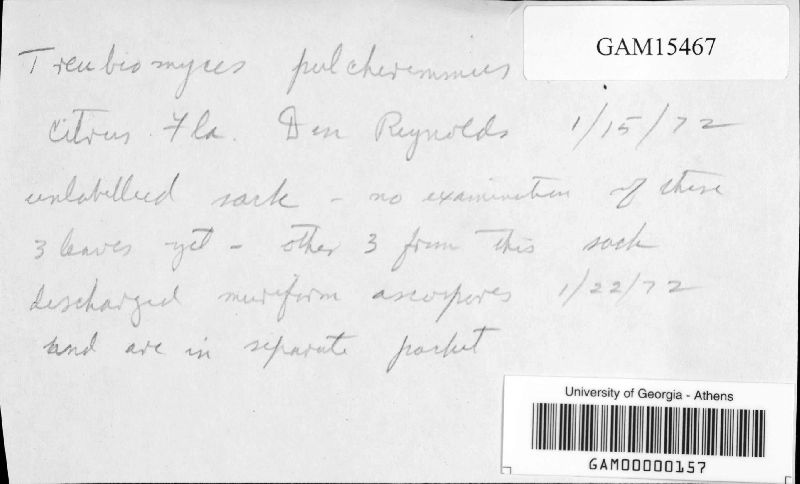 GAM15467
Treubiomyces pulcherrimus
citrus Fla. Don Reynolds 1/15/72
unlabelled sack - no examination of these
3 leaves yet - other 3 from this sack
discharged muriform ascospores 1/22/72
and are in separate packet
University of Georgia - Athens
GAM00000157